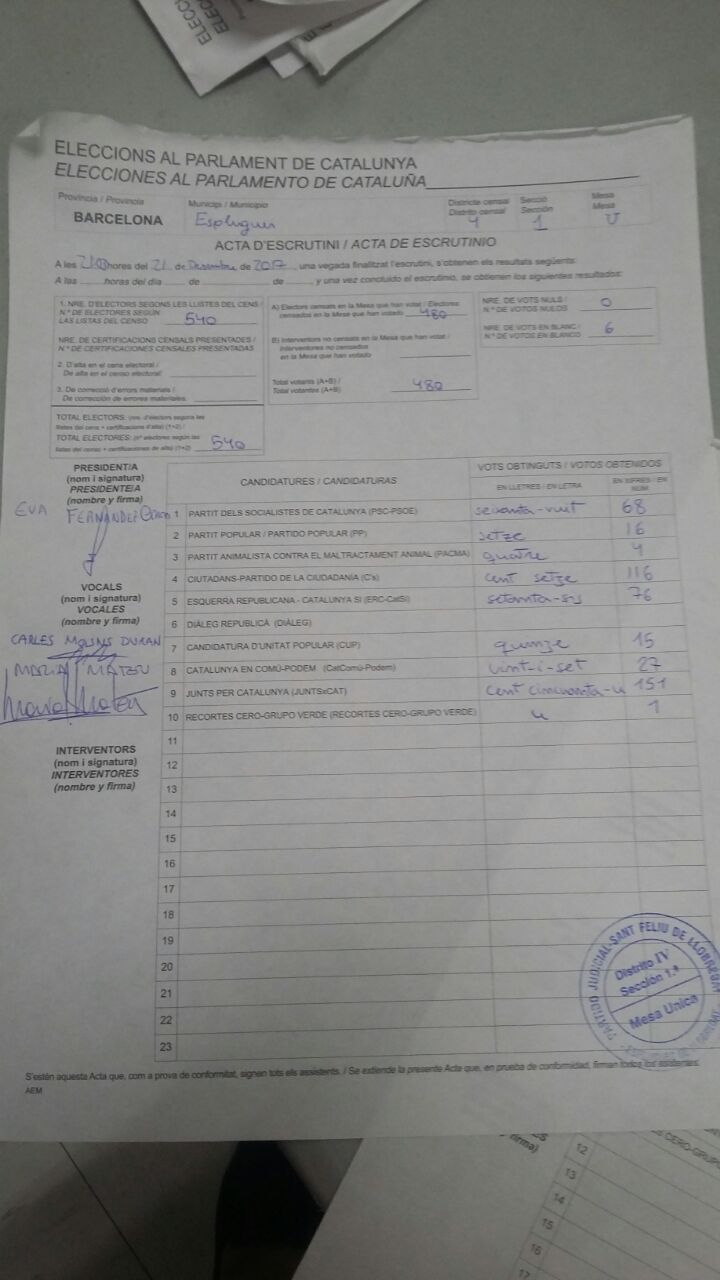 ELECCIONS AL PARLAMENT DE CATALUNYA
ELECCIONES AL PARLAMENTO DE CATALUÑA
Provincia / Provincia
BARCELONA
Municipi / Municipio
Esplugues
Districte censal
Distrito censal
4
Secció
Sección
1
Mesa
Mesa
U
ACTA D'ESCRUTINI / ACTA DE ESCRUTINIO
A les hores del 21 de Desembre de 2017, una vegada finalitzat l'escrutini, s'obtenen els resultats següents:
A las horas del día de de y una vez concluido el escrutinio, se obtienen los siguientes resultados:
1. NRE. D'ELECTORS SEGONS LES LLISTES DEL CENS /
Nº DE ELECTORES SEGÚN
LAS LISTAS DEL CENSO 540
NRE. DE CERTIFICACIONS CENSALS PRESENTADES /
Nº DE CERTIFICACIONES CENSALES PRESENTADAS
2. D'alta en el cens electoral /
De alta en el censo electoral:
3. De correcció d'errors materials /
De corrección de errores materiales
TOTAL ELECTORS: (nre. d'electors segons les
llistes del cens + certificacions d'alta) (1+2) /
TOTAL ELECTORES: (nº electores según las
listas del censo + certificaciones de alta) (1+2) 540
A) Electors censats en la Mesa que han votat / Electores
censados en la Mesa que han votado 480
B) Interventors no censats en la Mesa que han votat /
Interventores no censados
en la Mesa que han votado
Total votants (A+B) /
Total votantes (A+B) 480
NRE. DE VOTS NULS /
Nº DE VOTOS NULOS 0
NRE. DE VOTS EN BLANC /
Nº DE VOTOS EN BLANCO 6
PRESIDENT/A
(nom i signatura)
PRESIDENTE/A
(nombre y firma)
EVA FERNANDEZ
VOCALS
(nom i signatura)
VOCALES
(nombre y firma)
CARLES MOLINS DURAN
MARIA MATEU
Maria Mateu
INTERVENTORS
(nom i signatura)
INTERVENTORES
(nombre y firma)
CANDIDATURES / CANDIDATURAS
VOTS OBTINGUTS / VOTOS OBTENIDOS
EN LLETRES / EN LETRA
EN XIFRES / EN NÚM.
1 PARTIT DELS SOCIALISTES DE CATALUNYA (PSC-PSOE) seixanta-vuit 68
2 PARTIT POPULAR / PARTIDO POPULAR (PP) setze 16
3 PARTIT ANIMALISTA CONTRA EL MALTRACTAMENT ANIMAL (PACMA) quatre 4
4 CIUTADANS-PARTIDO DE LA CIUDADANIA (C's) cent setze 116
5 ESQUERRA REPUBLICANA - CATALUNYA SI (ERC-CatSí) setanta-sis 76
6 DIÀLEG REPUBLICÀ (DIÀLEG)
7 CANDIDATURA D'UNITAT POPULAR (CUP) quinze 15
8 CATALUNYA EN COMÚ-PODEM (CatComú-Podem) vint-i-set 27
9 JUNTS PER CATALUNYA (JUNTSxCAT) cent cincuanta-u 151
10 RECORTES CERO-GRUPO VERDE (RECORTES CERO-GRUPO VERDE) u 1
11
12
13
14
15
16
17
18
19
20
21
22
23
PARTIDO JUDICIAL-SANT FELIU DE LLOBREGAT
Distrito IV
Sección 1.ª
Mesa Unica
S'estén aquesta Acta que, com a prova de conformitat, signen tots els assistents. / Se extiende la presente Acta que, en prueba de conformidad, firman todos los asistentes.
AEM
firma)
CERO-GRUPO
12
13
14
15
16
17